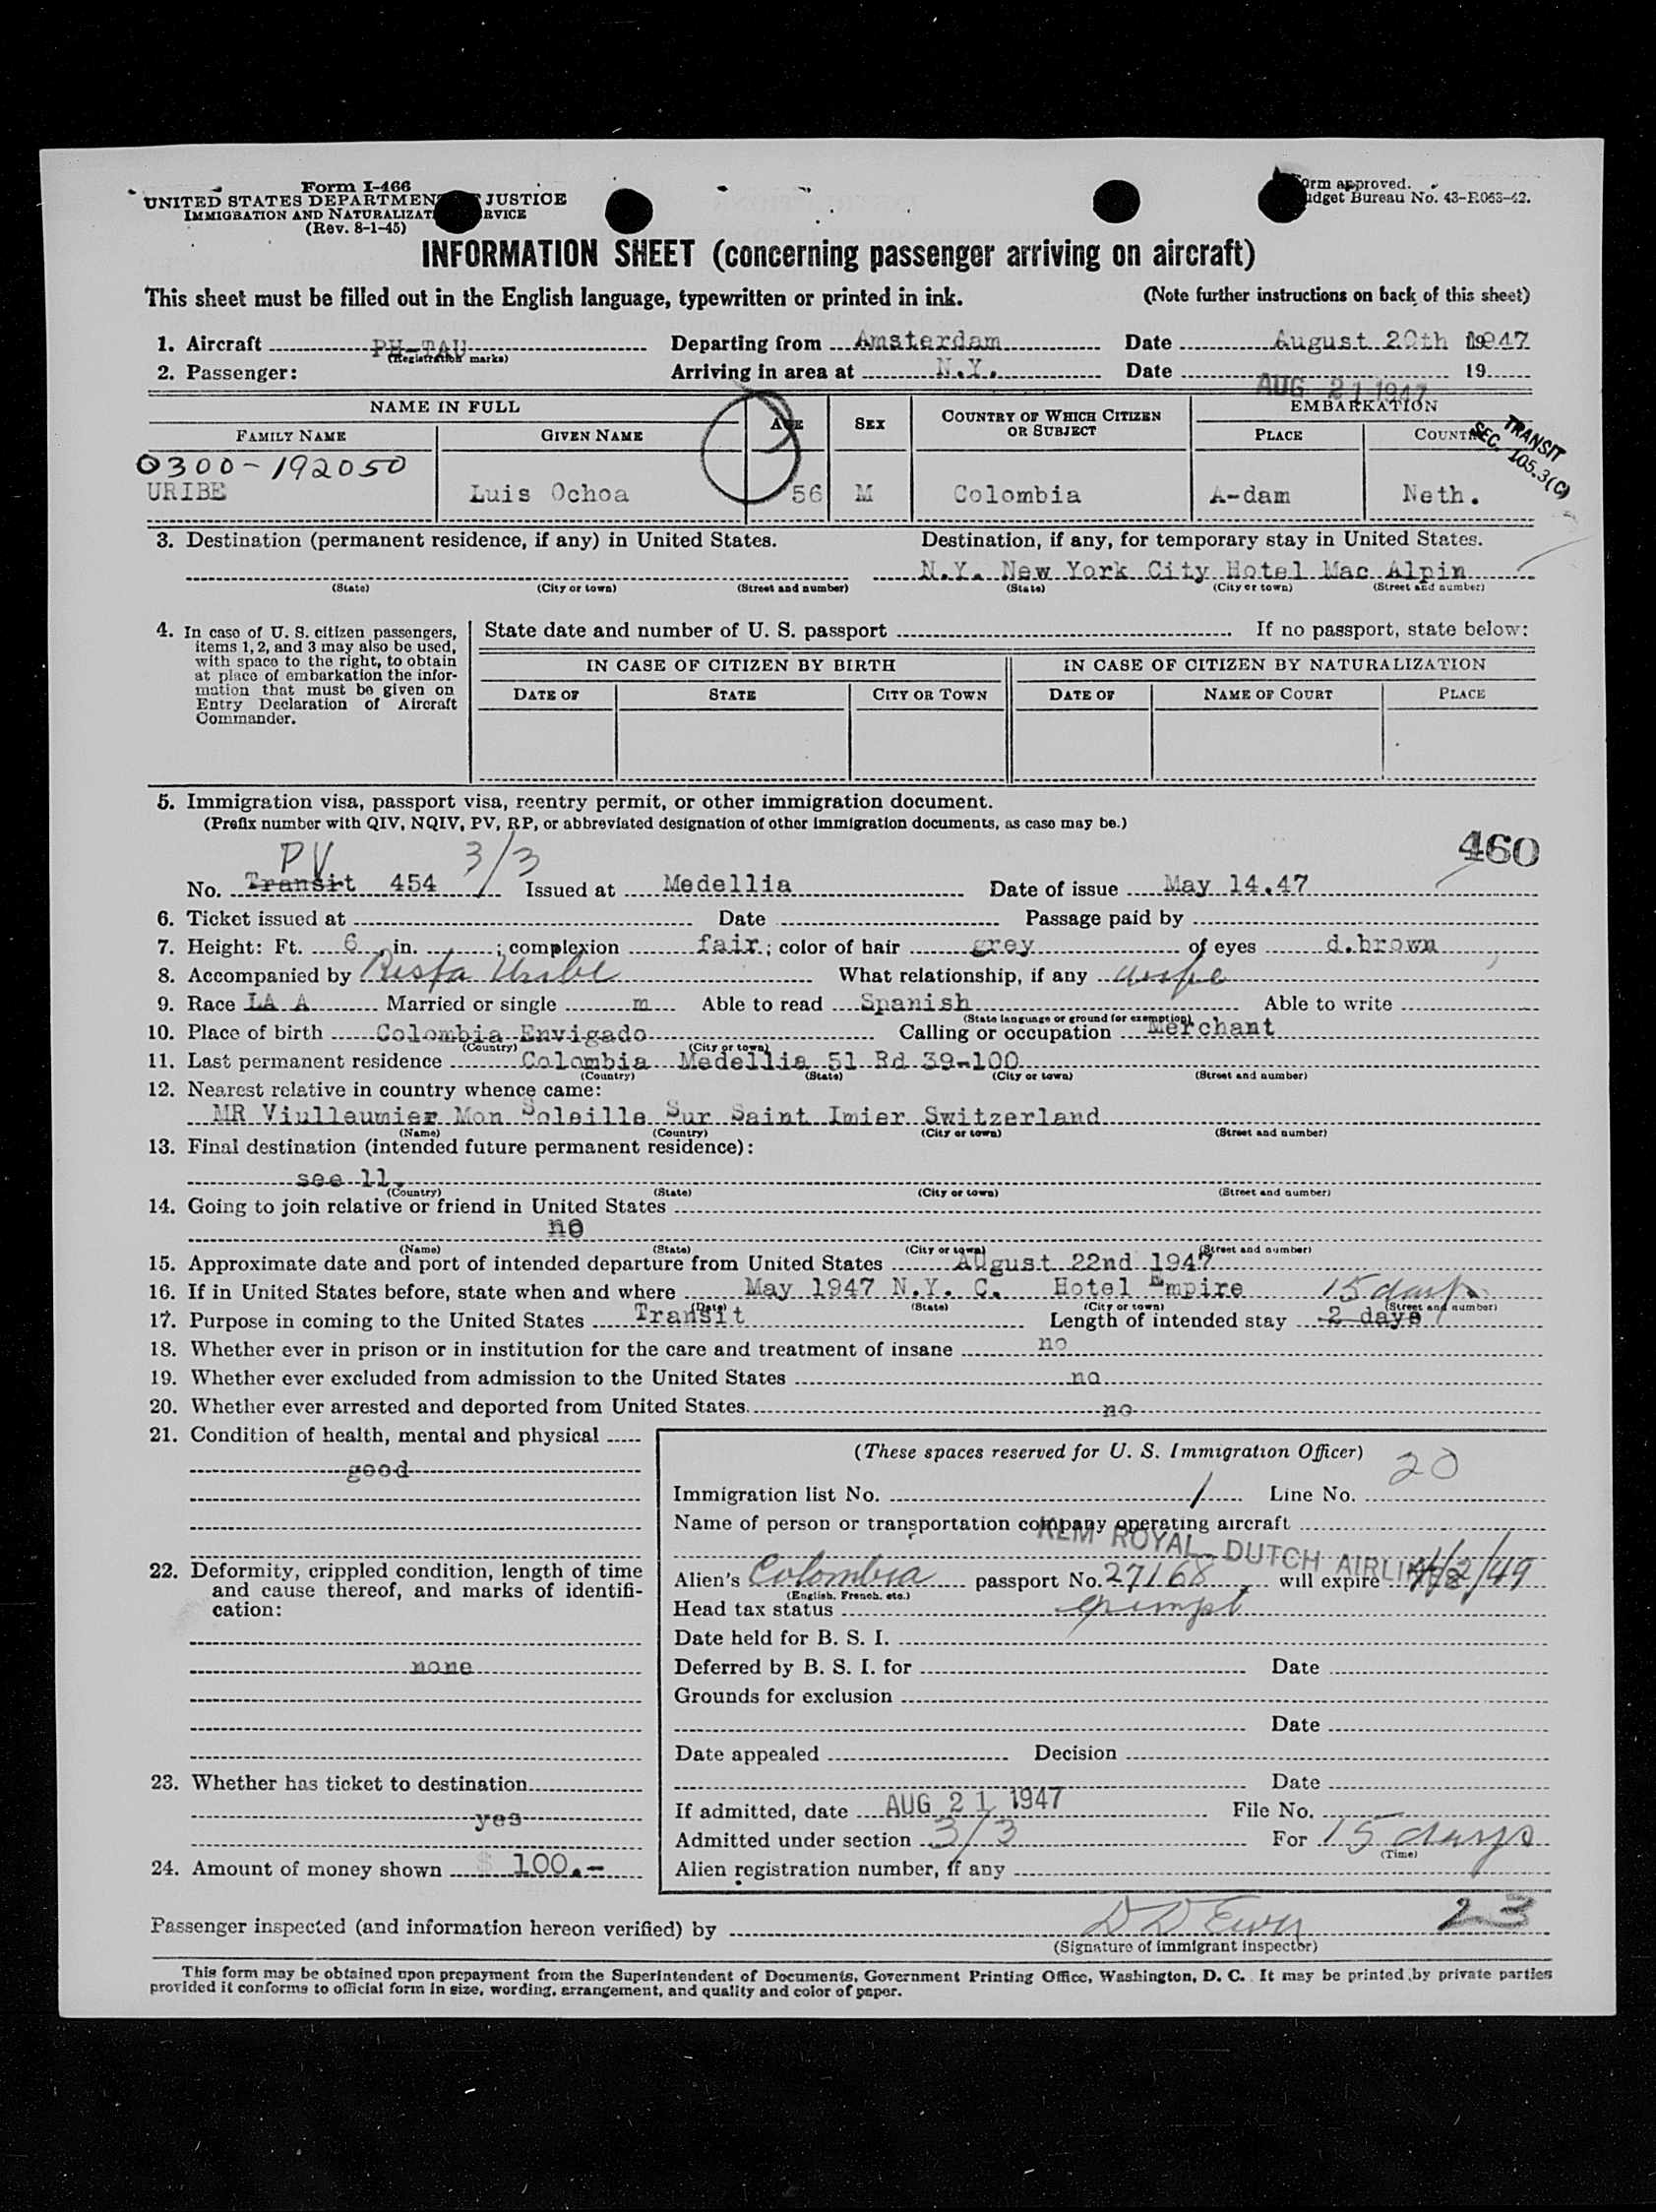 Form I-466
UNITED STATES DEPARTMENT JUSTICE
IMMIGRATION AND NATURALIZAT RVICE
(Rev. 8-1-45)
orm approved.
udget Bureau No. 43-R063-42.
INFORMATION SHEET (concerning passenger arriving on aircraft)
This sheet must be filled out in the English language, typewritten or printed in ink. (Note further instructions on back of this sheet)
1. Aircraft PH-TAU Departing from Amsterdam Date August 20th 1947
(Registration marks)
2. Passenger: Arriving in area at N.Y. Date AUG 21 1947 19
NAME IN FULL AGE SEX COUNTRY OF WHICH CITIZEN OR SUBJECT EMBARKATION
FAMILY NAME GIVEN NAME PLACE COUNT
TRANSIT
SEC. 105.3(C)
0300-192050
URIBE Luis Ochoa 56 M Colombia A-dam Neth.
3. Destination (permanent residence, if any) in United States. Destination, if any, for temporary stay in United States.
N.Y. New York City Hotel Mac Alpin
(State) (City or town) (Street and number) (State) (City or town) (Street and number)
4. In case of U. S. citizen passengers, items 1, 2, and 3 may also be used, with space to the right, to obtain at place of embarkation the information that must be given on Entry Declaration of Aircraft Commander.
State date and number of U. S. passport If no passport, state below:
IN CASE OF CITIZEN BY BIRTH IN CASE OF CITIZEN BY NATURALIZATION
DATE OF STATE CITY OR TOWN DATE OF NAME OF COURT PLACE
5. Immigration visa, passport visa, reentry permit, or other immigration document.
(Prefix number with QIV, NQIV, PV, RP, or abbreviated designation of other immigration documents, as case may be.)
460
PV 3/3
No. Transit 454 Issued at Medellia Date of issue May 14.47
6. Ticket issued at Date Passage paid by
7. Height: Ft. 6 in. ; complexion fair ; color of hair grey of eyes d.brown
8. Accompanied by Uribe What relationship, if any wife
9. Race LA A Married or single m Able to read Spanish Able to write
(State language or ground for exemption)
10. Place of birth Colombia Envigado Calling or occupation Merchant
(Country) (City or town)
11. Last permanent residence Colombia Medellia 51 Rd 39-100
(Country) (State) (City or town) (Street and number)
12. Nearest relative in country whence came:
MR Viulleumier Mon Soleille Sur Saint Imier Switzerland
(Name) (Country) (City or town) (Street and number)
13. Final destination (intended future permanent residence):
see 11.
(Country) (State) (City or town) (Street and number)
14. Going to join relative or friend in United States
no
(Name) (State) (City or town) (Street and number)
15. Approximate date and port of intended departure from United States August 22nd 1947
16. If in United States before, state when and where May 1947 N.Y. C. Hotel Empire
(Date) (State) (City or town) (Street and number)
15 days
17. Purpose in coming to the United States Transit Length of intended stay 2 days
18. Whether ever in prison or in institution for the care and treatment of insane no
19. Whether ever excluded from admission to the United States no
20. Whether ever arrested and deported from United States. no
21. Condition of health, mental and physical
good
22. Deformity, crippled condition, length of time and cause thereof, and marks of identification:
none
23. Whether has ticket to destination
yes
24. Amount of money shown $ 100.-
(These spaces reserved for U. S. Immigration Officer)
Immigration list No. 1 Line No. 20
Name of person or transportation company operating aircraft
KLM ROYAL DUTCH AIRLINES
Alien's Colombia passport No. 27168 will expire /2/49
(English, French, etc.)
Head tax status exempt
Date held for B. S. I.
Deferred by B. S. I. for Date
Grounds for exclusion
Date
Date appealed Decision
Date
If admitted, date AUG 21 1947 File No.
Admitted under section 3/3 For 15 days
(Time)
Alien registration number, if any
Passenger inspected (and information hereon verified) by 23
(Signature of immigrant inspector)
This form may be obtained upon prepayment from the Superintendent of Documents, Government Printing Office, Washington, D. C. It may be printed by private parties
provided it conforms to official form in size, wording, arrangement, and quality and color of paper.